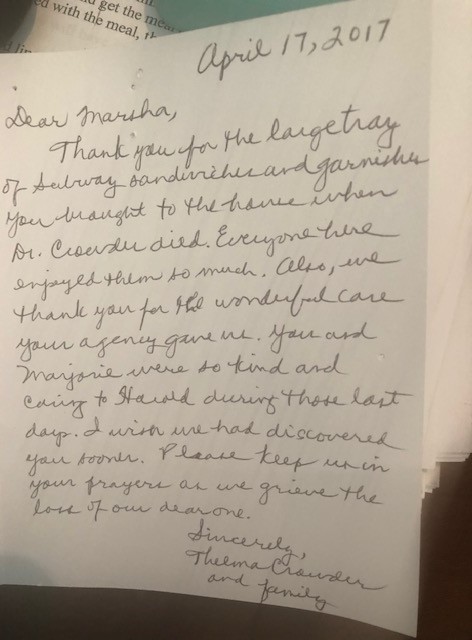 get the mea
ed with the meal, th
April 17, 2017
Dear Marsha,
Thank you for the large tray
of Subway sandwiches and garnishes
you brought to the house when
Dr. Crowder died. Everyone here
enjoyed them so much. Also, we
thank you for the wonderful care
your agency gave us. You and
Marjorie were so kind and
caring to Harold during those last
days. I wish we had discovered
you sooner. Please keep us in
your prayers as we grieve the
loss of our dear one.
Sincerely,
Thelma Crowder
and family